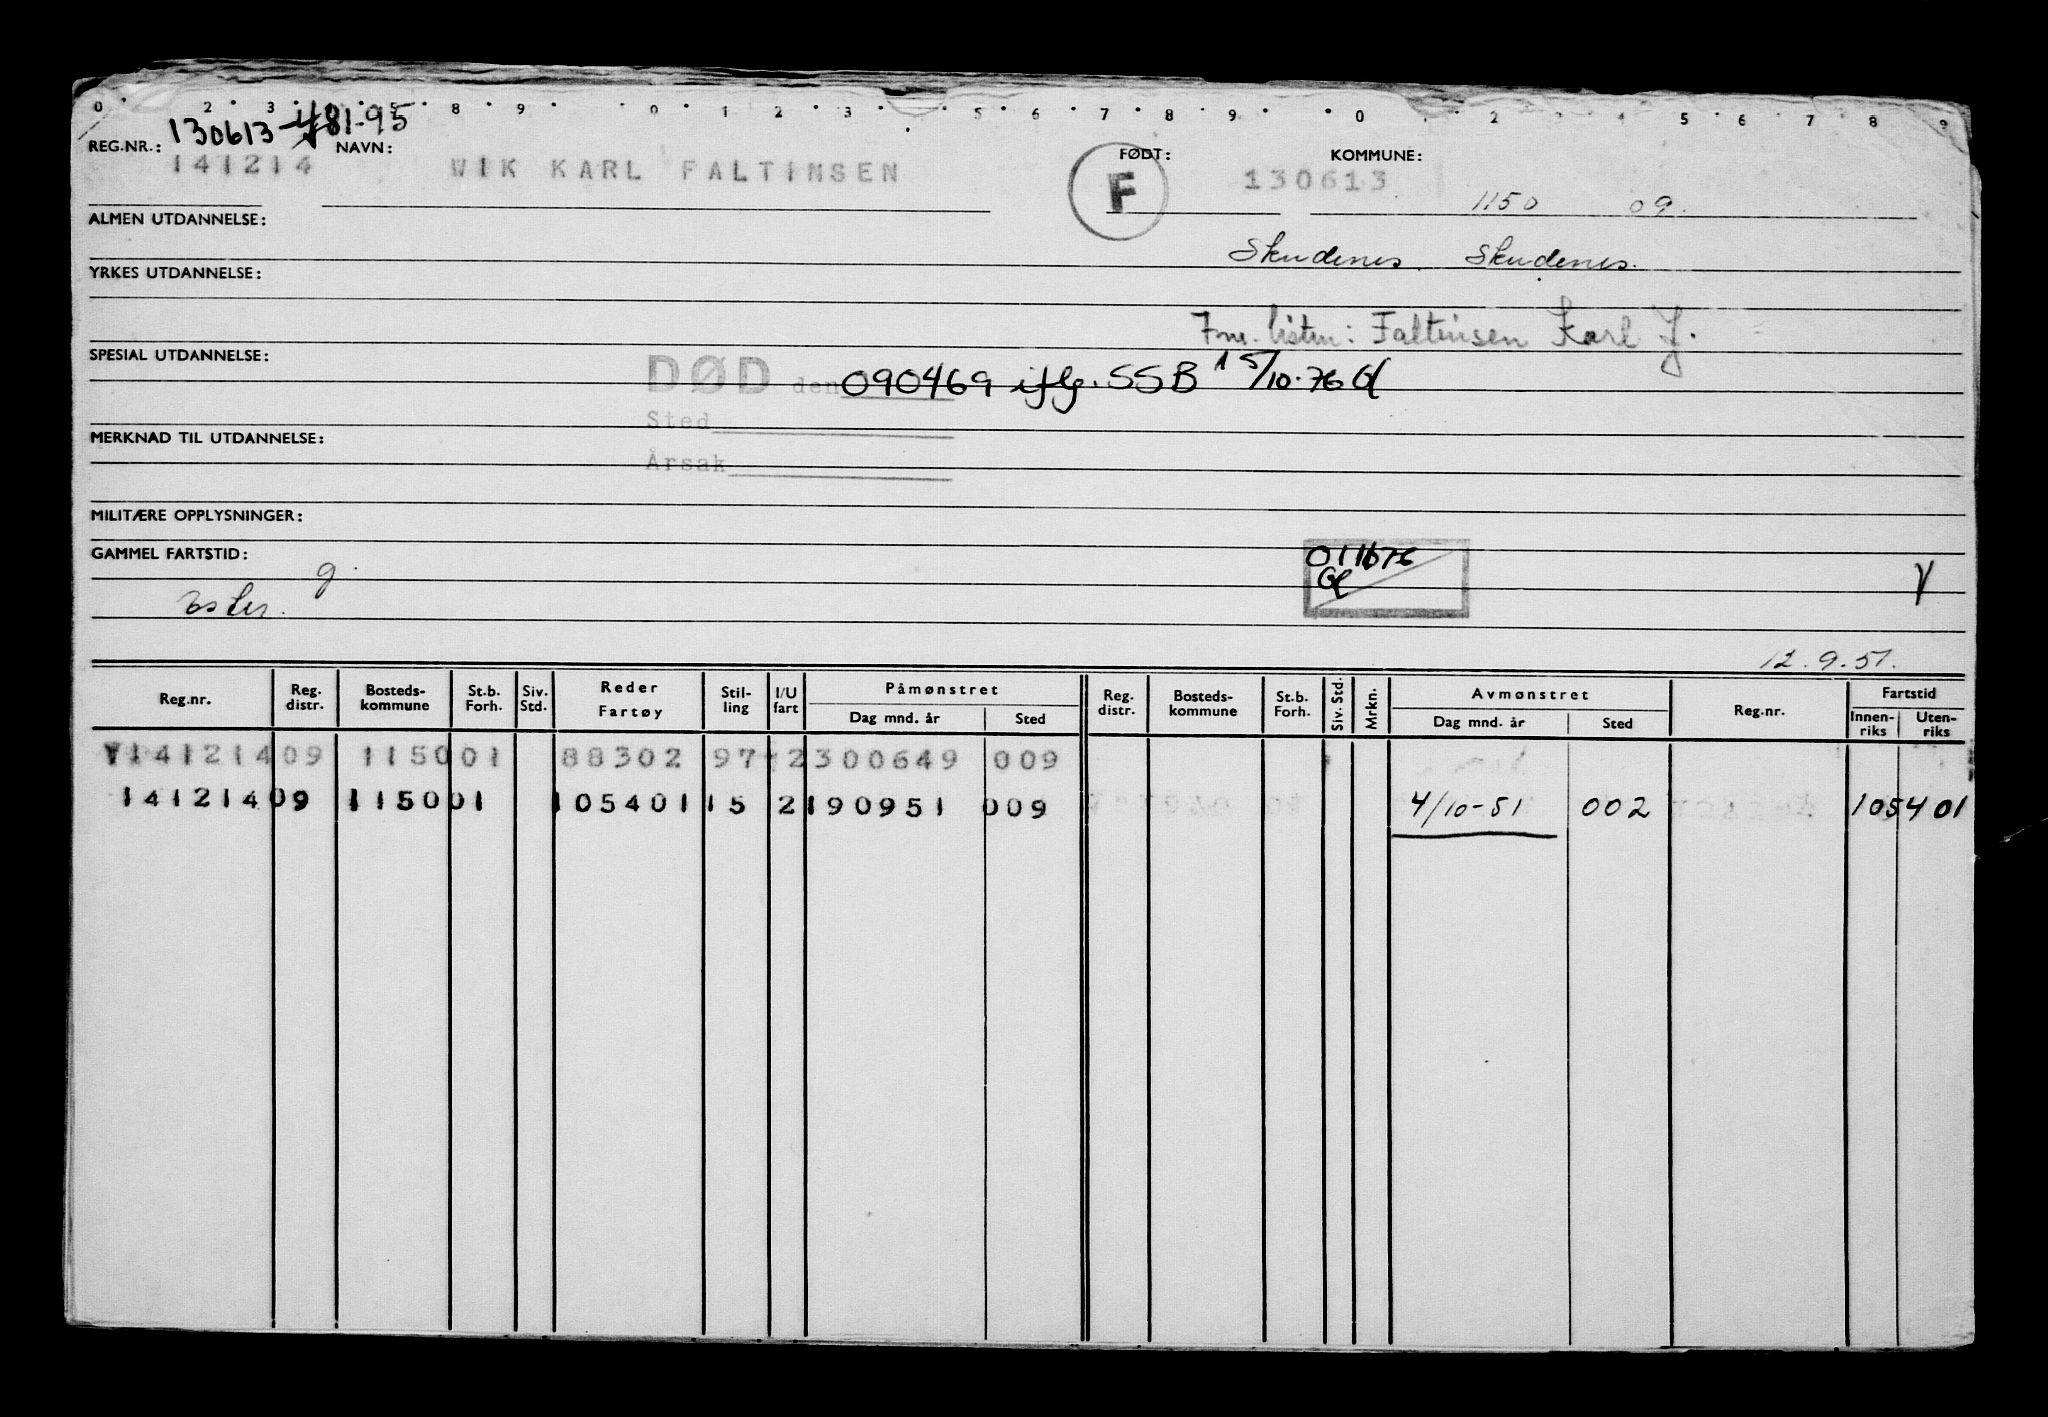 0 2 3 5 8 9 0 1 2 3 5 6 7 8 9 0 2 3 5 6 7 8 9
REG.NR.: 130613 481-95 NAVN: FØDT: KOMMUNE:
141214 WIK KARL FALTINSEN F 130613
1150 09.
ALMEN UTDANNELSE:
Skudenes. Skudenes.
YRKES UTDANNELSE:
listen: Faltinsen Karl J.
SPESIAL UTDANNELSE:
DØD den 090469 iflg. SSB 15/10-76
Sted
MERKNAD TIL UTDANNELSE:
Årsak
MILITÆRE OPPLYSNINGER:
GAMMEL FARTSTID: 011076
g.
12.9.51.
Reg.nr. Reg. distr. Bosteds-kommune St.b. Forh. Siv. Std. Reder Fartøy Stil-ling I/U fart Påmønstret Dag mnd. år Sted Reg. distr. Bosteds-kommune St.b. Forh. Siv. Std. Mrkn. Avmønstret Dag mnd. år Sted Reg.nr. Fartstid Innen-riks Uten-riks
Y14121409 115001 88302 97 2300649 009
14121409 115001 10540115 2190951 009 4/10-51 002 105401